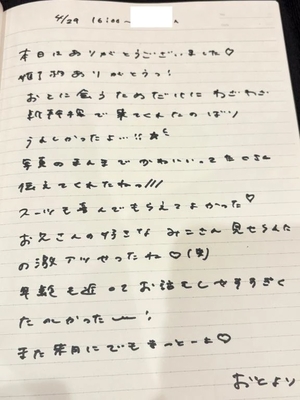 4/29 16:00〜
本日はありがとうございました♡
ありがとうっ!
おとに会うためだけにわざわざ
新幹線で来てくれたのばり
うれしかったよ…!!
写真のまんまでかわいいってたくさん
伝えてくれたねっ///
スーツも喜んでもらえてよかった♡
お兄さんの好きなみこさん見せられた
の激アツやったね♡(笑)
年齢も近くてお話もしやすすぎて
たのしかった!
また来月にでもきっとーよ♡
おとより